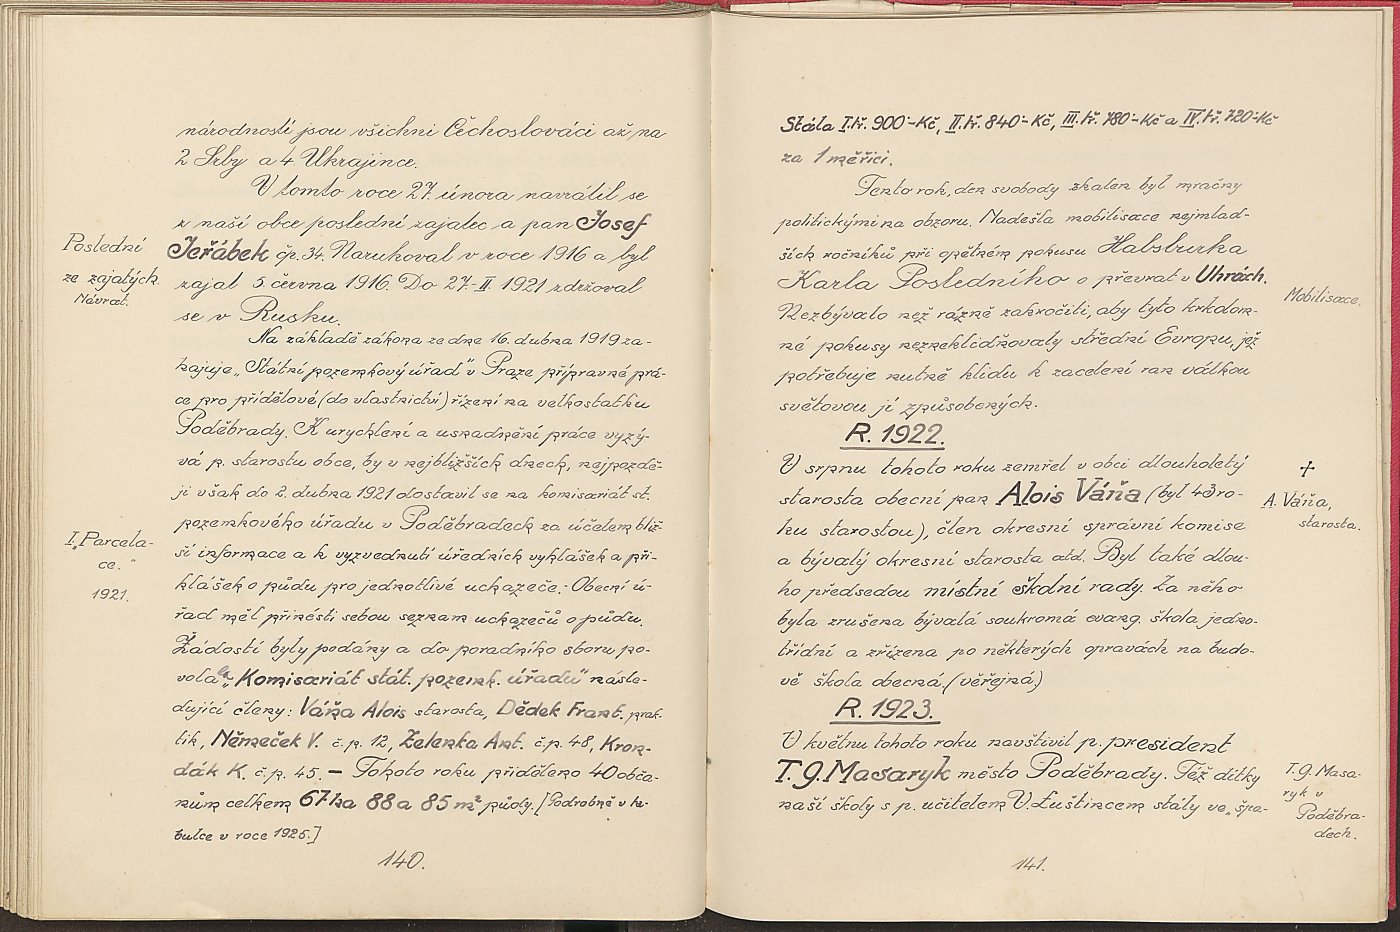 národností jsou všichni Čechoslováci až na
2 Srby a 4 Ukrajince.
V tomto roce 27. února navrátil se
z naší obce poslední zajatec a pan Josef
Poslední
ze zajatých.
Návrat.
Jeřábek čp. 34. Narukoval v roce 1916 a byl
zajat 5. června 1916. Do 27.-II. 1921 zdržoval
se v Rusku.
Na základě zákona ze dne 16. dubna 1919 za-
hajuje „Státní pozemkový úřad" v Praze přípravné prá-
ce pro přídělové (do vlastnictví) řízení na velkostatku
Poděbrady. K urychlení a usnadnění práce vyzý-
vá p. starostu obce, by v nejbližších dnech, nejpozdě-
ji však do 2. dubna 1921 dostavil se na komisariát st.
pozemkového úřadu v Poděbradech za účelem bliž-
I. „Parcela-
ce."
1921.
ší informace a k vyzvednutí úředních vyhlášek a při-
hlášek o půdu pro jednotlivé uchazeče.- Obecní ú-
řad měl přinésti sebou seznam uchazečů o půdu.
Žádosti byly podány a do poradního sboru po-
volal „Komisariát stát. pozemk. úřadu" násle-
dující členy: Váňa Alois starosta, Dědek Frant. prak-
tik, Němeček V. č.p. 12, Zelenka Ant. č.p. 48, Kron-
dák K. č.p. 45. – Tohoto roku přiděleno 40 obča-
nům celkem 67 ha 88 a 85 m² půdy. [Podrobně v ta-
bulce v roce 1925.]
140.
Stála I.tř. 900·-Kč, II.tř. 840·-Kč, III.tř. 780·-Kč a IV.tř. 720·-Kč
za 1 měřici.
Tento rok, den svobody zkalen byl mračny
politickými na obzoru. Nadešla mobilisace nejmlad-
ších ročníků při opětném pokusu Habsburka
Karla Posledního o převrat v Uhrách.
Mobilisace.
Nezbývalo než rázně zakročiti, aby tyto krkolom-
né pokusy nezneklidňovaly střední Evropu, jež
potřebuje nutně klidu k zacelení ran válkou
světovou jí způsobených.
R. 1922.
V srpnu tohoto roku zemřel v obci dlouholetý
starosta obecní pan Alois Váňa (byl 43 ro-
+
A. Váňa,
starosta.
ku starostou), člen okresní správní komise
a bývalý okresní starosta atd. Byl také dlou-
ho předsedou místní školní rady. Za něho
byla zrušena bývalá soukromá evang. škola jedno-
třídní a zřízena po některých opravách na budo-
vě škola obecná. (veřejná)
R. 1923.
V květnu tohoto roku navštívil p. president
T. G. Masaryk město Poděbrady. Též dítky
naší školy s p. učitelem V. Luštincem stály ve „špa-
T. G. Masa-
ryk v
Poděbra-
dech.
141.